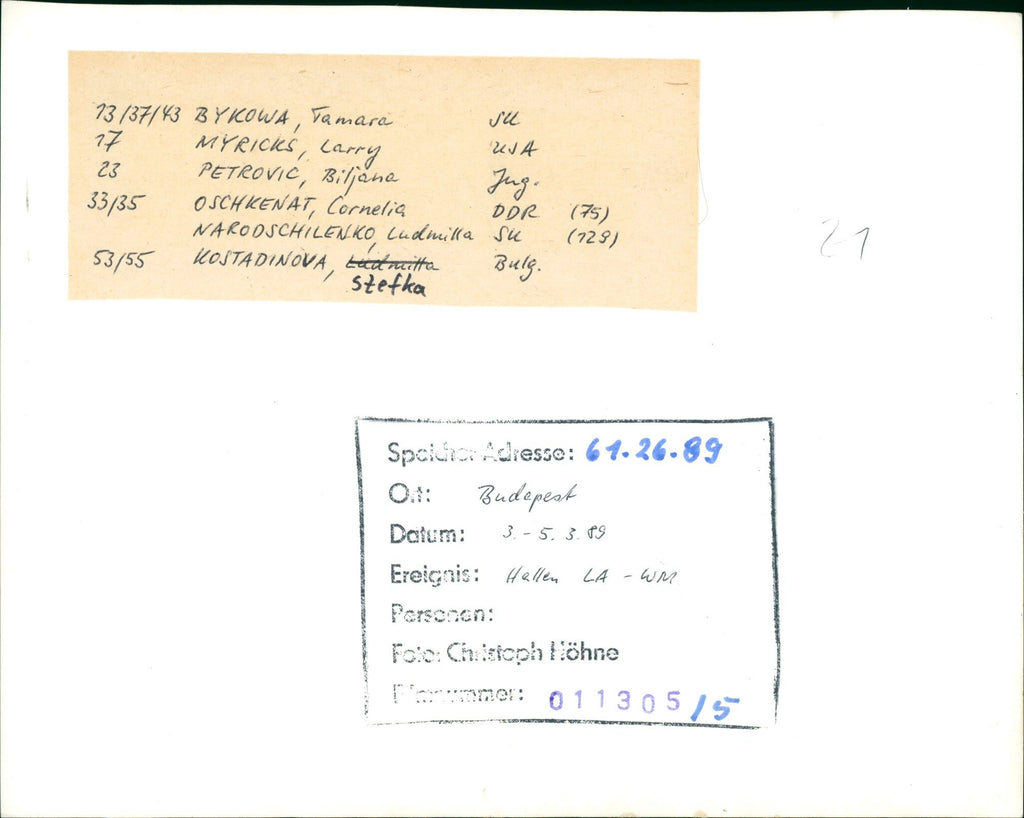 13/37/43 BYKOWA, Tamara SU
17 MYRICKS, Larry USA
23 PETROVIC, Biljana Jug.
33/35 OSCHKENAT, Cornelia DDR (75)
NARODSCHILENKO, Ludmilla SU (129)
53/55 KOSTADINOVA, Ludmilla Bulg.
Stefka
21
Speicher-Adresse: 61.26.89
Ort: Budapest
Datum: 3.-5.3.89
Ereignis: Hallen LA-WM
Personen:
Foto: Christoph Höhne
Filmnummer: 011305/5